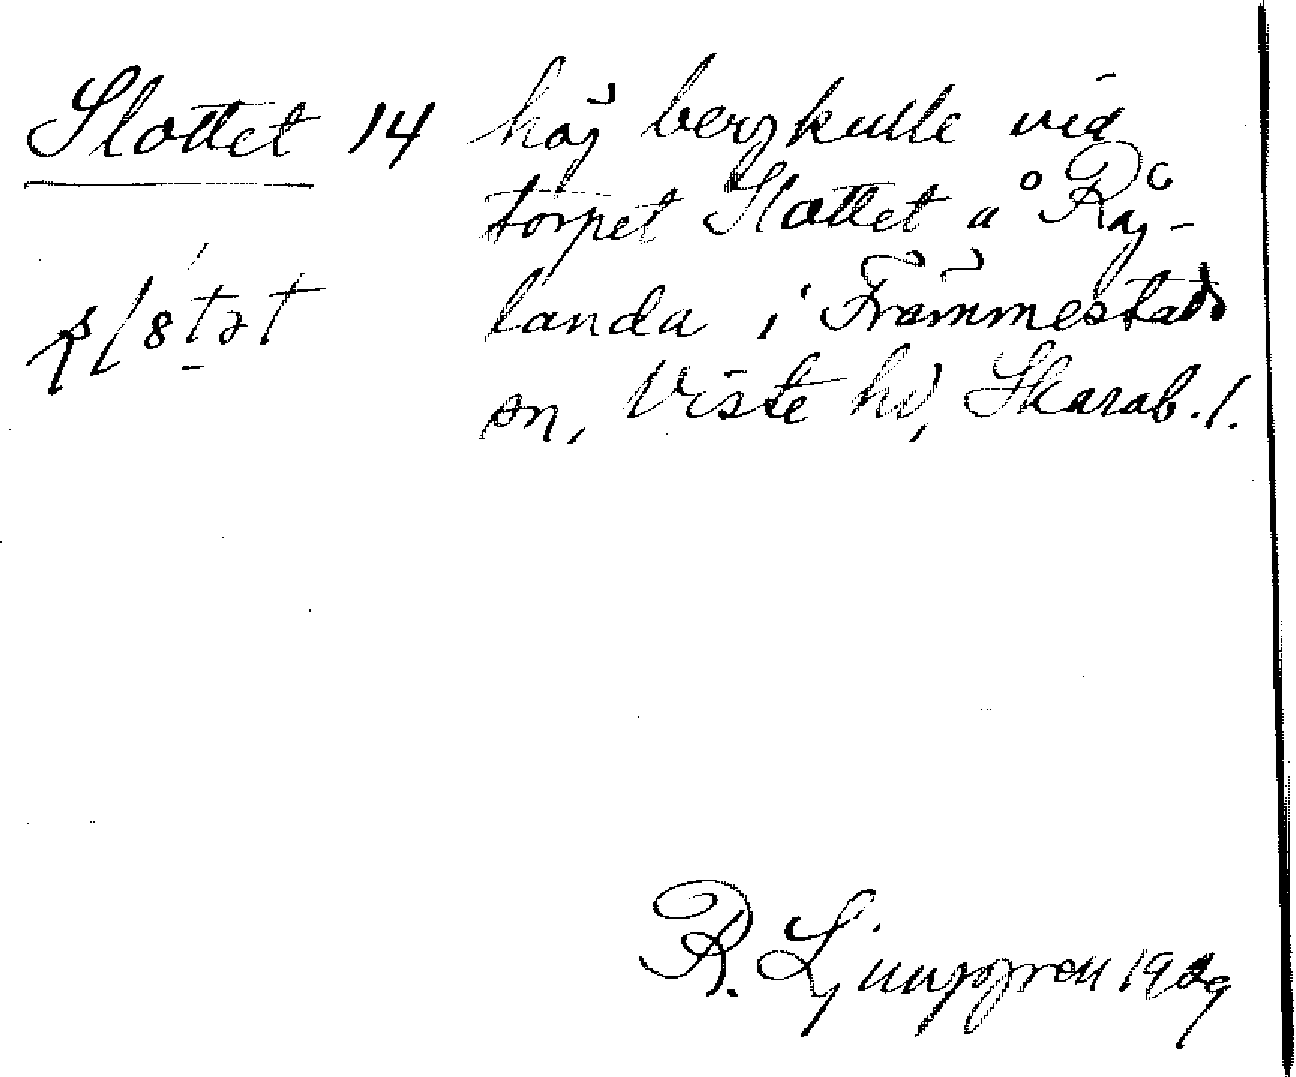 Slottet 14 hög bergkulle vid
torpet Slottet å Röj-
landa i Främmestads
sn, Viste hd, Skarab. l.
R. Ljunggren 1929